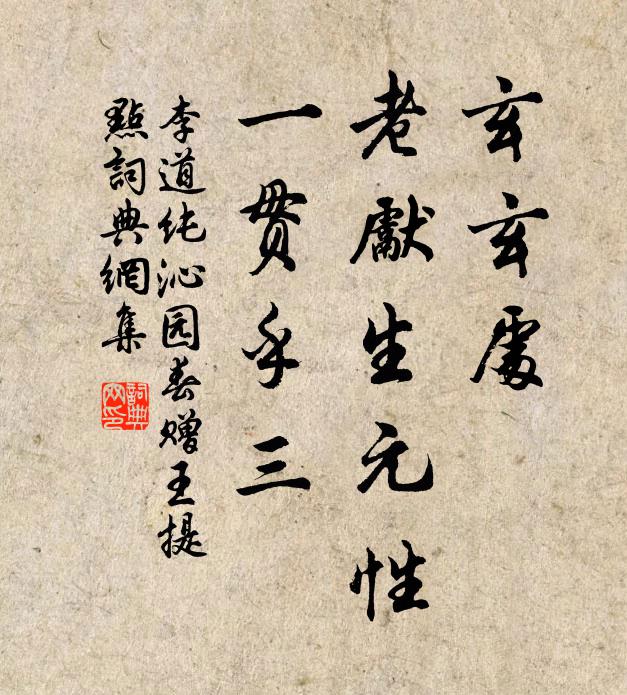 玄玄處
老獻生元性
一贯乎三
李道纯沁园春赠王提
點詞典網集
詞典網印